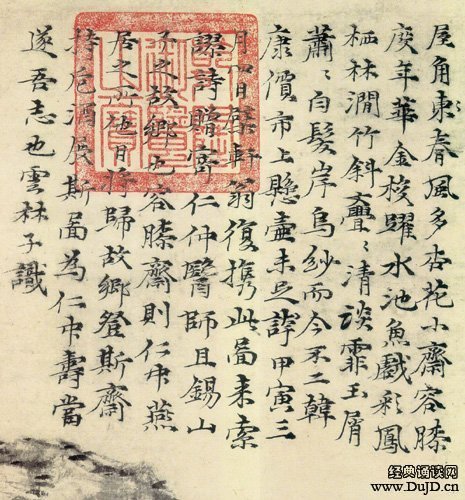 屋角東春風多杏花小齋容膝
度年華金梭躍水池魚戲彩鳳
栖林澗竹斜亹〻清談霏玉屑
蕭〻白髮岸烏紗而今不二韓
康價市上懸壺未足誇甲寅三
月四日蘖軒翁復携此啚来索
謬詩贈寄仁仲醫師且錫山
予之故鄉也容膝齋則仁仲燕
居之所他日将歸故鄉登斯齋
持卮酒展斯啚為仁仲壽當
遂吾志也雲林子識
经典诵读网
www.DuJD.cn